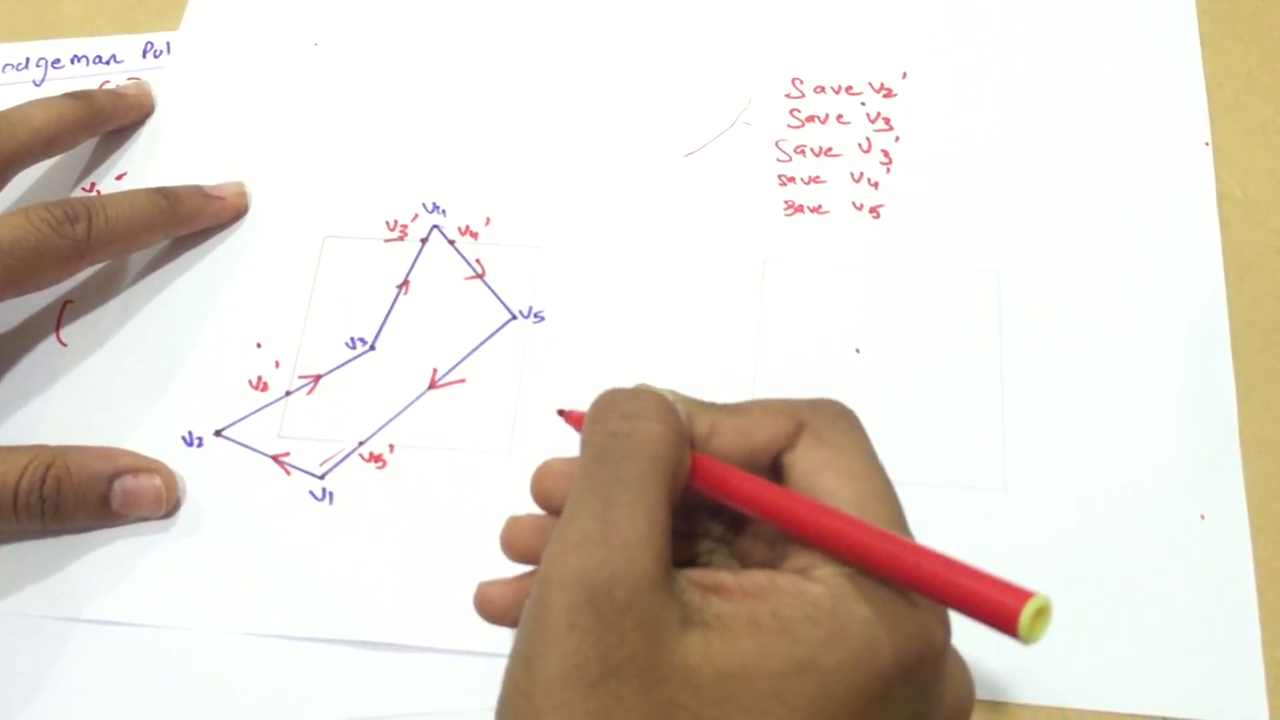 odgeman Pol
Save v2'
Save v3
Save v3'
save v4'
save v5
v4
v3'
v4'
v5
v3
v2'
v2
v5'
v1